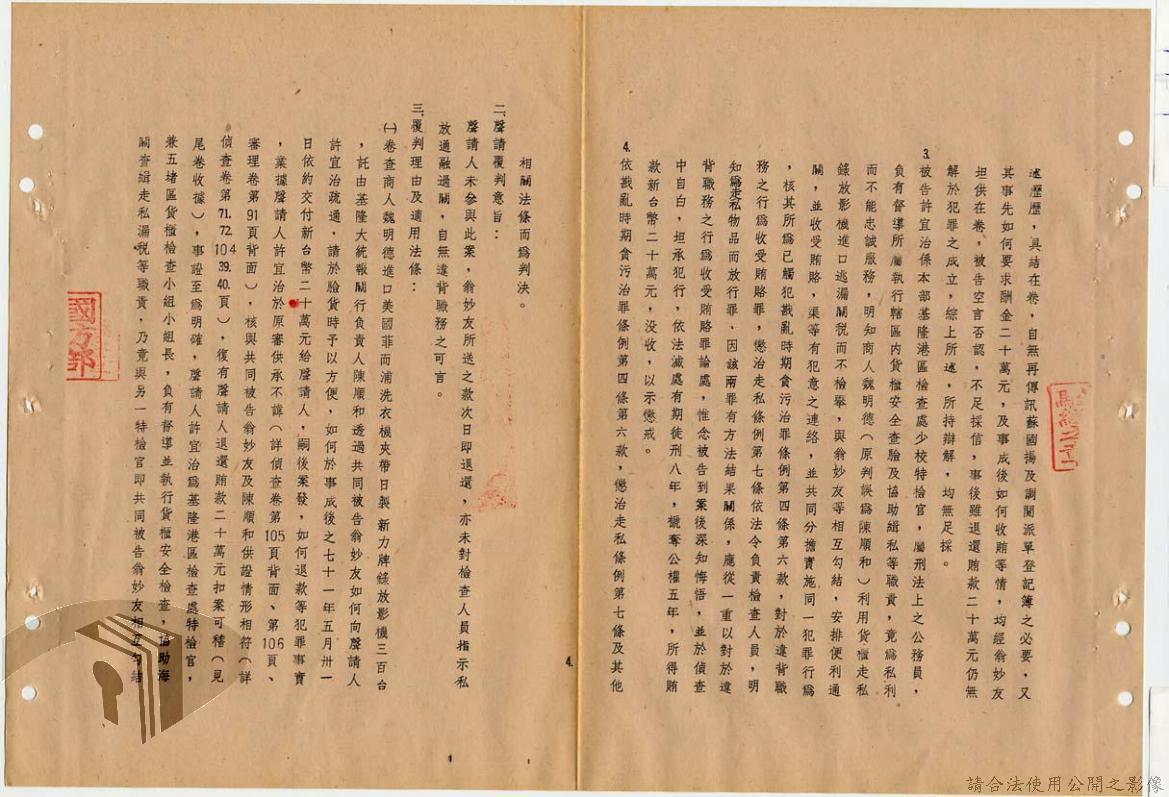 述歷歷，具結在卷，自無再傳訊蘇國揚及調閱派單登記簿之必要，又
其事先如何要求酬金二十萬元，及事成後如何收賄等情，均經翁妙友
坦供在卷，被告空言否認，不足採信，事後雖退還賄款二十萬元仍無
解於犯罪之成立，綜上所述，所持辯解，均無足採。
3.被告許宜治係本部基隆港區檢查處少校特檢官，屬刑法上之公務員，
負有督導所屬執行轄區內貨櫃安全查驗及協助緝私等職責，竟為私利
而不能忠誠服務，明知商人魏明德（原判誤為陳順和）利用貨櫃走私
錄放影機進口逃漏關稅而不檢舉，與翁妙友等相互勾結，安排便利通
關，並收受賄賂，渠等有犯意之連絡，並共同分擔實施同一犯罪行為
，核其所為已觸犯戡亂時期貪污治罪條例第四條第六款，對於違背職
務之行為收受賄賂罪，懲治走私條例第七條依法令負責檢查人員，明
知為走私物品而放行罪．因該兩罪有方法結果關係，應從一重以對於違
背職務之行為收受賄賂罪論處，惟念被告到案後深知悔悟，並於偵查
中自白，坦承犯行，依法減處有期徒刑八年，褫奪公權五年，所得賄
款新台幣二十萬元，沒收，以示懲戒。
4.依戡亂時期貪污治罪條例第四條第六款，懲治走私條例第七條及其他
4.
相關法條而為判決。
二、聲請覆判意旨：
聲請人未參與此案，翁妙友所送之款次日即退還，亦未對檢查人員指示私
放通融過關，自無違背職務之可言。
三、覆判理由及適用法條：
㈠卷查商人魏明德進口美國菲而浦洗衣機夾帶日製新力牌錄放影機三百台
，託由基隆大統報關行負責人陳順和透過共同被告翁妙友如何向聲請人
許宜治疏通，請於驗貨時予以方便，如何於事成後之七十一年五月卅一
日依約交付新台幣二十萬元給聲請人，嗣後案發，如何退款等犯罪事實
，業據聲請人許宜治於原審供承不諱（詳偵查卷第105頁背面、第106頁、
審理卷第91頁背面），核與共同被告翁妙友及陳順和供證情形相符（詳
偵查卷第71.72.104 39.40.頁），復有聲請人退還賄款二十萬元扣案可稽（見
尾卷收據），事證至為明確，聲請人許宜治為基隆港區檢查處特檢官，
兼五堵區貨櫃檢查小組小組長，負有督導並執行貨櫃安全檢查，協助海
關查緝走私漏稅等職責，乃竟與另一特檢官即共同被告翁妙友相互勾結
國防部
請合法使用公開之影像